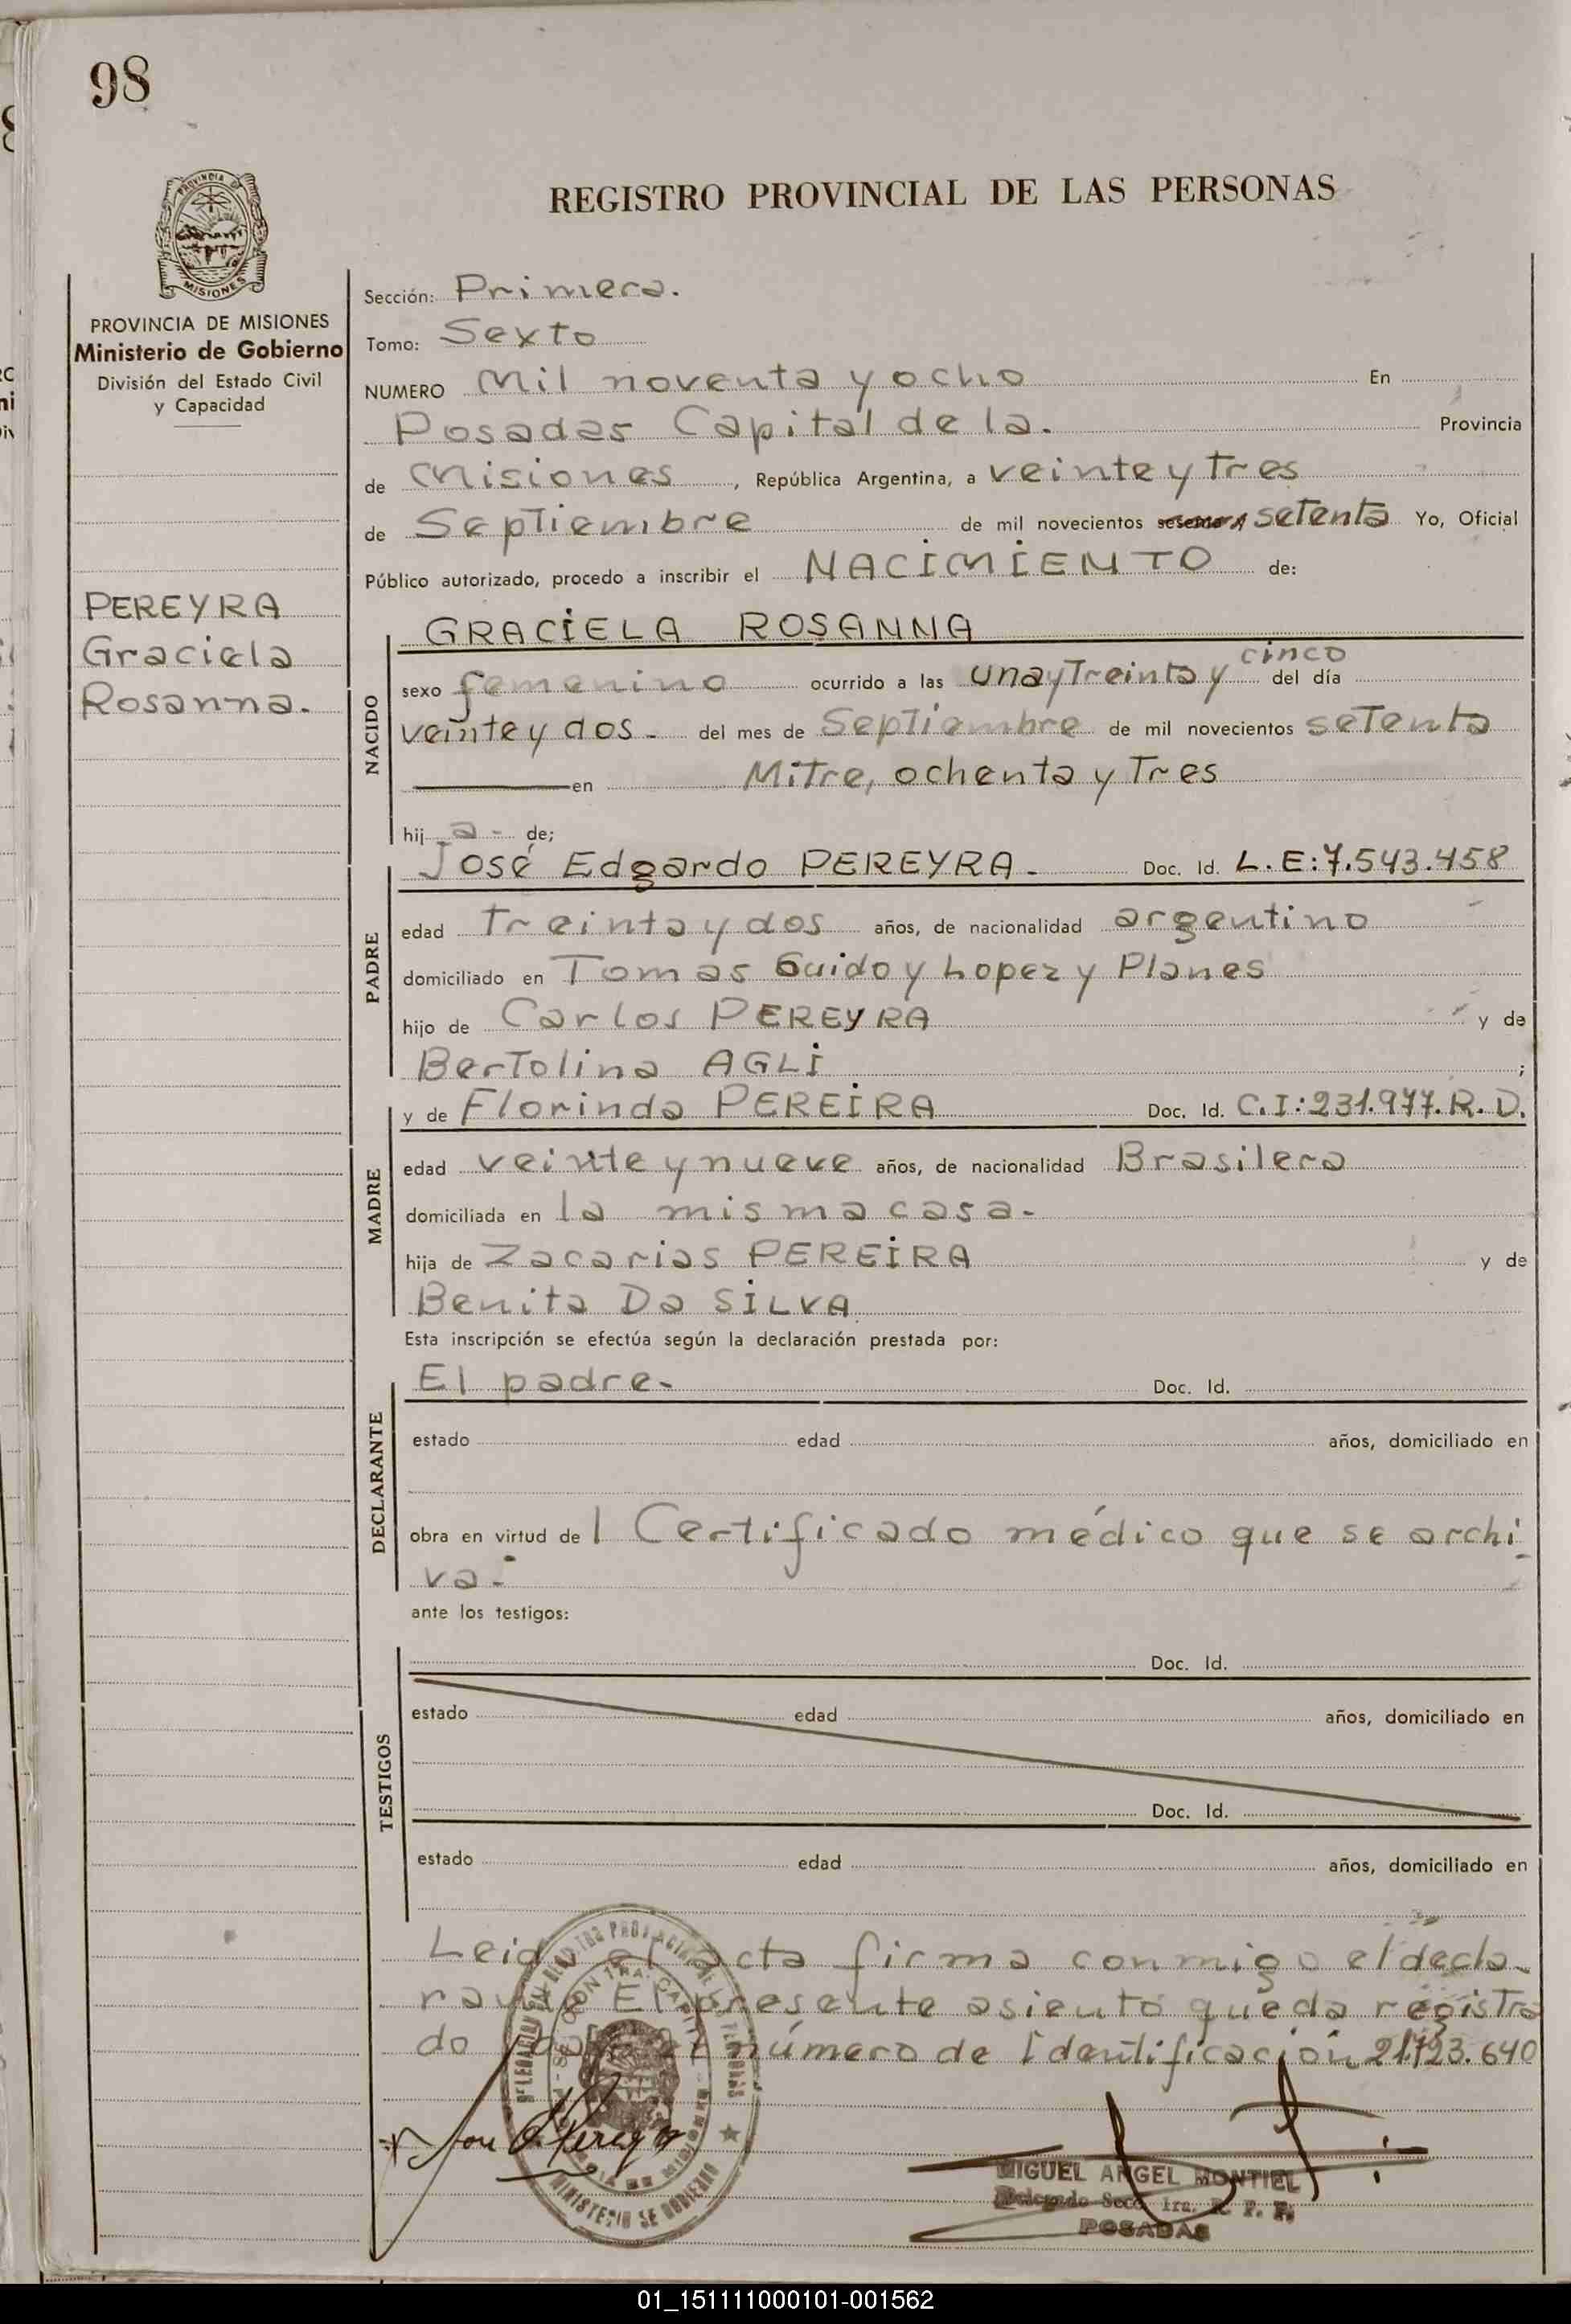 98
PROVINCIA DE
MISIONES
REGISTRO PROVINCIAL DE LAS PERSONAS
PROVINCIA DE MISIONES
Ministerio de Gobierno
División del Estado Civil
y Capacidad
PEREYRA
Graciela
Rosanna.
Sección: Primera.
Tomo: Sexto
NUMERO Mil noventa y ocho En
Posadas Capital de la. Provincia
de Misiones, República Argentina, a veinte y Tres
de Septiembre de mil novecientos setenta Yo, Oficial
Público autorizado, procedo a inscribir el NACIMIENTO de:
NACIDO
GRACIELA ROSANNA
sexo femenino ocurrido a las una y Treinta y cinco del día
veinte y dos - del mes de Septiembre de mil novecientos setenta
en Mitre, ochenta y Tres
hij a - de;
PADRE
José Edgardo PEREYRA - Doc. Id. L.E:7.543.458
edad Treinta y dos años, de nacionalidad argentino
domiciliado en Tomas Guido y Lopez y Planes
hijo de Carlos PEREYRA y de
Bertolina AGLI ;
MADRE
y de Florinda PEREIRA Doc. Id. C.I:231.977.R.D.
edad veinte y nueve años, de nacionalidad Brasilera
domiciliada en la misma casa -
hija de Zacarias PEREIRA y de
Benita Da SILVA
Esta inscripción se efectúa según la declaración prestada por:
DECLARANTE
El padre - Doc. Id.
estado edad años, domiciliado en
obra en virtud de l Certificado médico que se archi
va -
ante los testigos:
TESTIGOS
Doc. Id.
estado edad años, domiciliado en
Doc. Id.
estado edad años, domiciliado en
Leida el acta firma conmigo el decla-
rante El presente asiento queda registra
do número de Identificación 21.723.640
MINISTERIO DE GOBIERNO
MIGUEL ANGEL MONTIEL
Delegado Secc. 1ra. R. P. P.
POSADAS
01_151111000101-001562